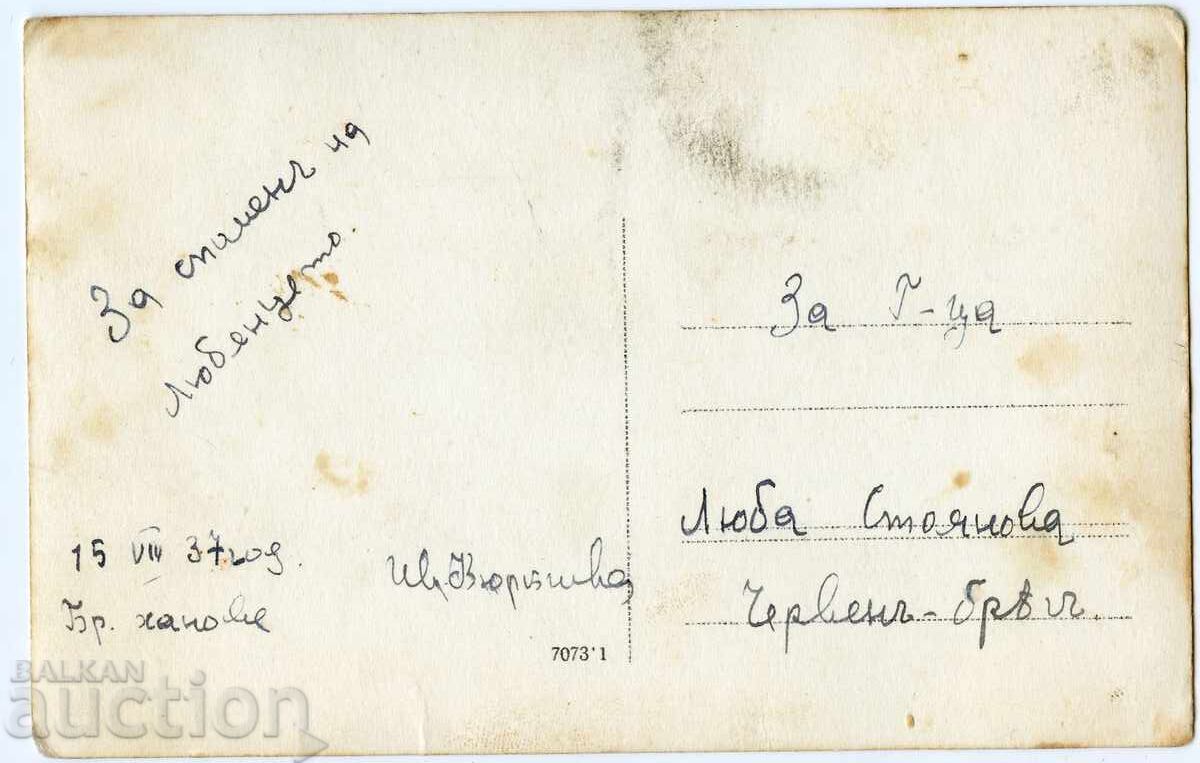 За споменъ на
Любенцето.
15 VIII 37 год.
Бр. ханове
7073'1
За Г-ца
Люба Стоянова
Червенъ-брѣгъ.
BALKAN
auction